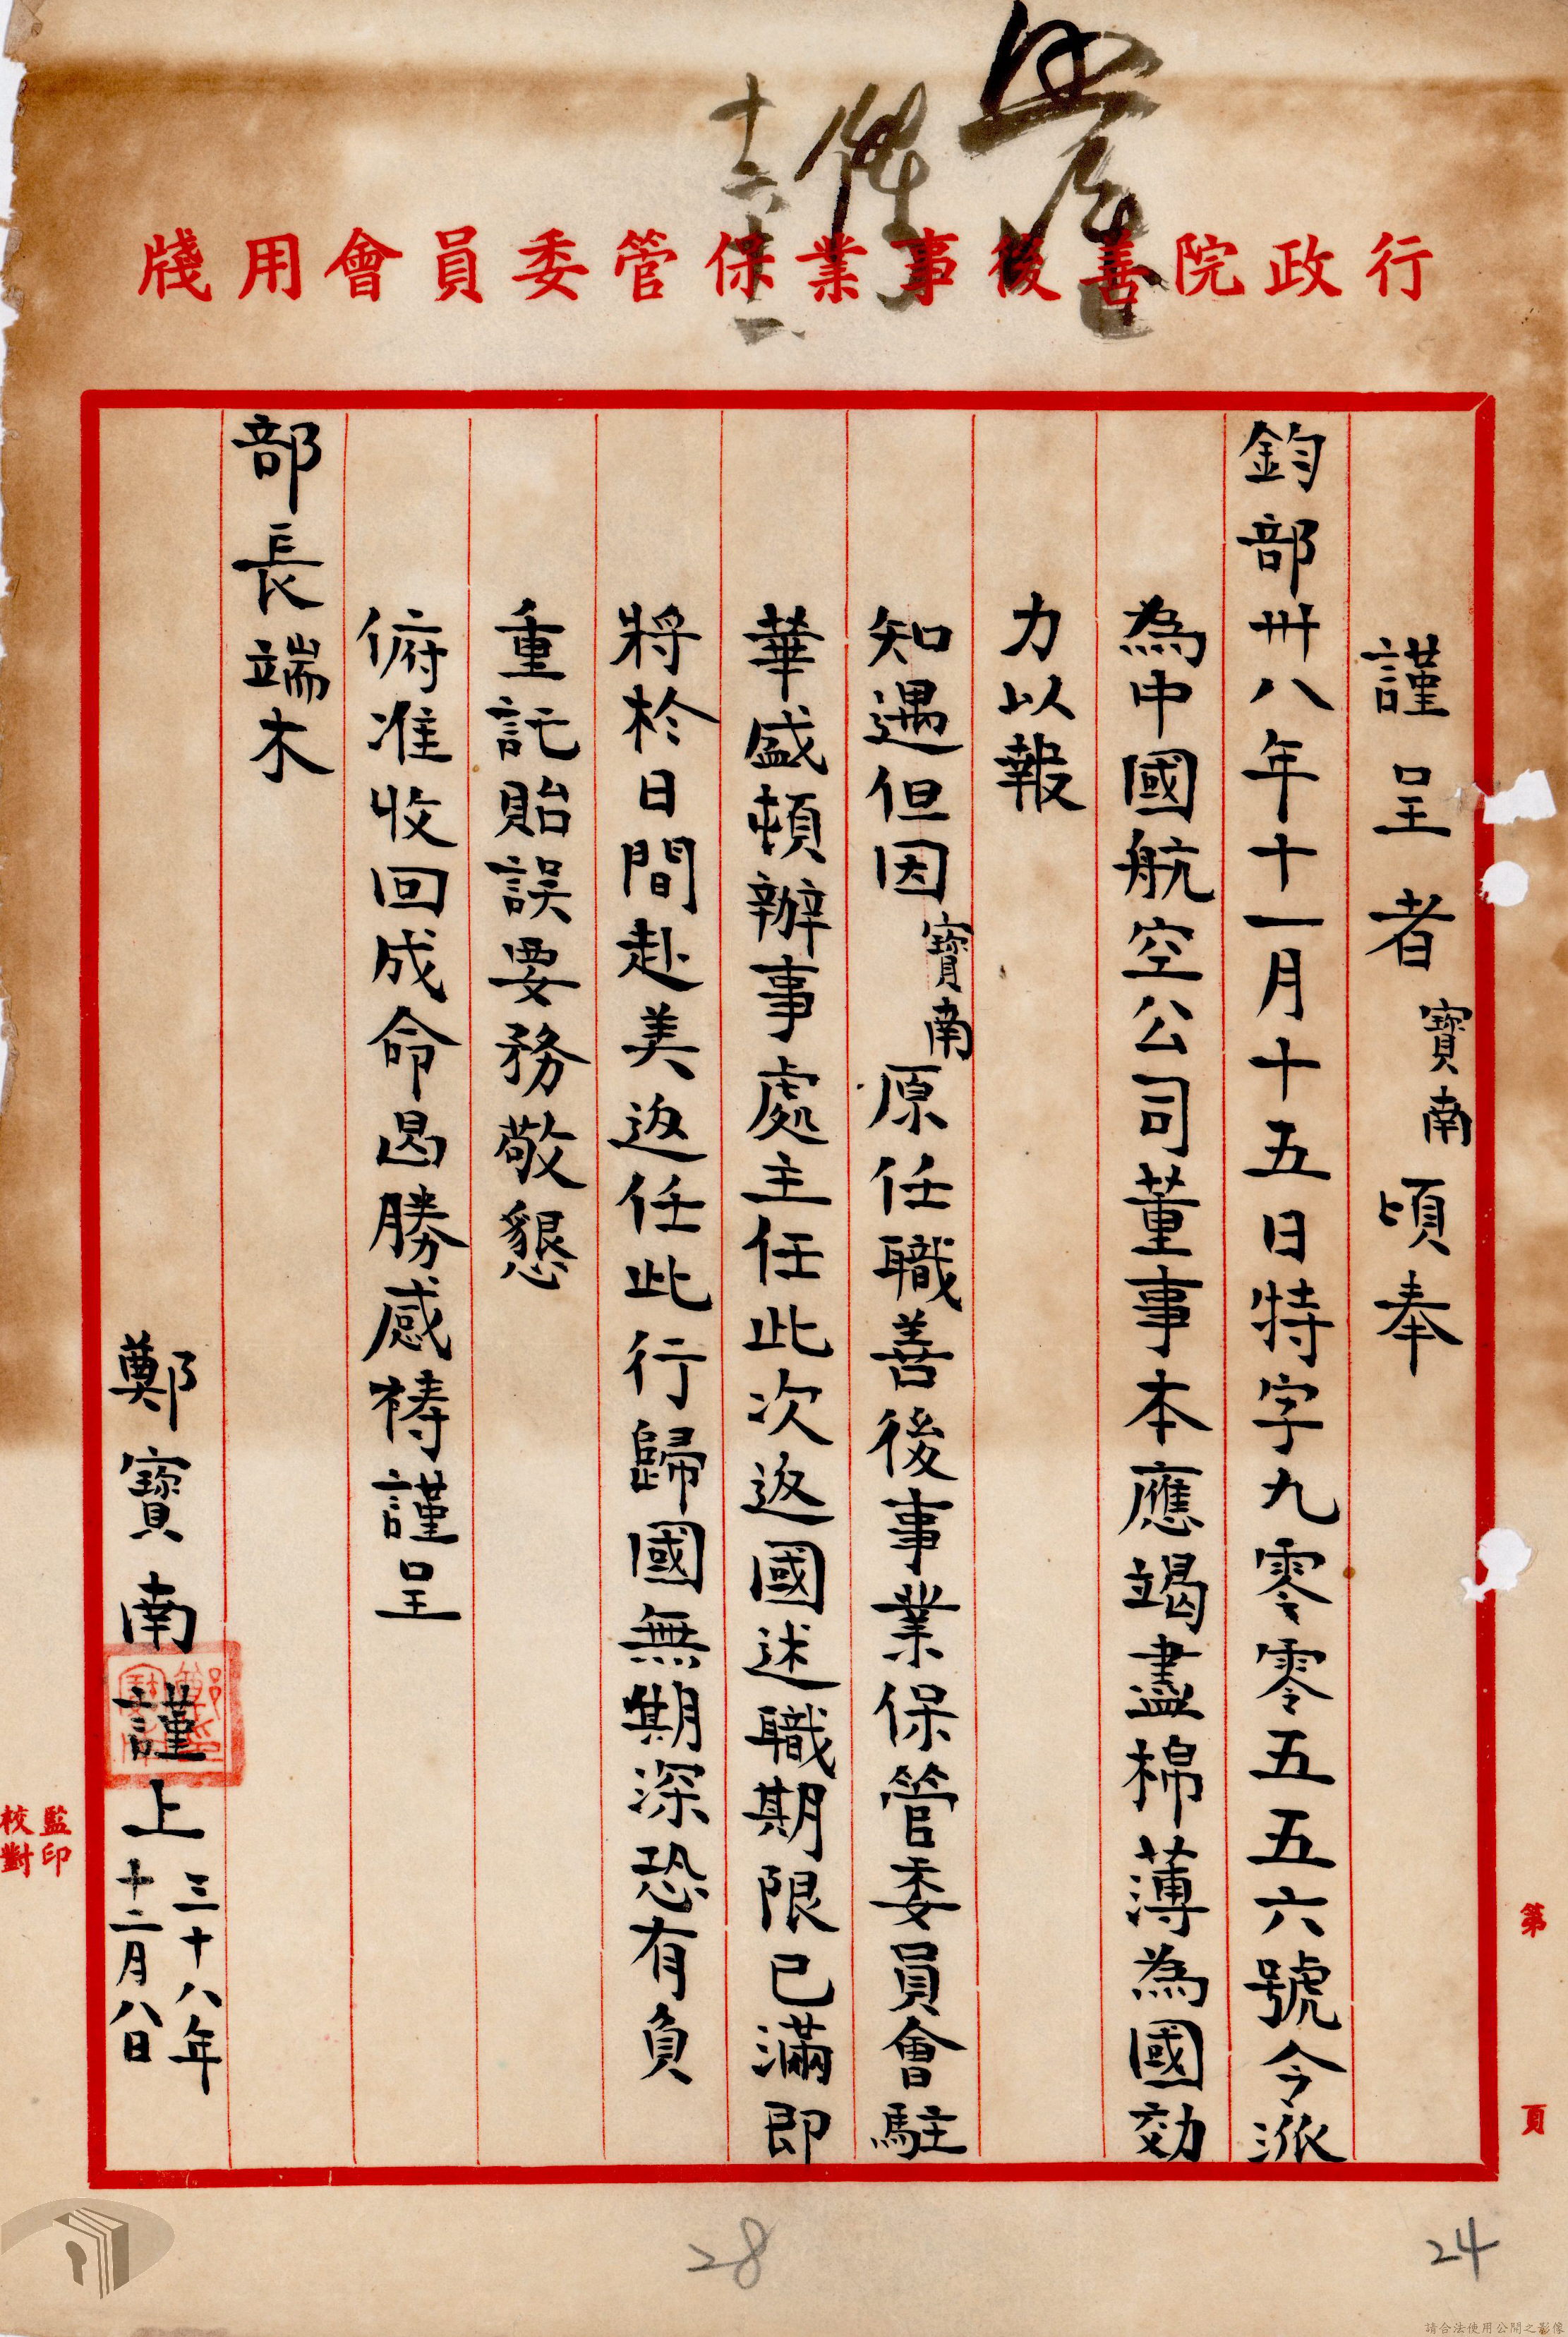 行政院善後事業保管委員會用牋
謹呈者寶南頃奉
鈞部卅八年十一月十五日特字九零零五五六號令派
為中國航空公司董事本應竭盡棉薄為國効
力以報
知遇但因寶南原任職善後事業保管委員會駐
華盛頓辦事處主任此次返國述職期限已滿即
將於日間赴美返任此行歸國無期深恐有負
重託貽誤要務敬懇
俯准收回成命曷勝感禱謹呈
部長端木
鄭寶南謹上三十八年
十二月八日
監印
校對
第頁
28
24
請合法使用公開之影像